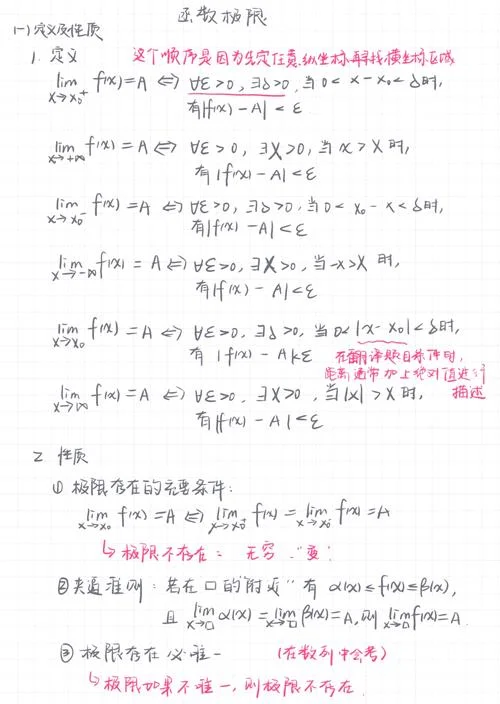 函数极限
(一) 定义及性质
1. 定义 这个顺序是因为先定任意纵坐标,再找横坐标区域
lim x→x₀⁺ f(x)=A ⇔ ∀ε>0, ∃δ>0, 当 0<x-x₀<δ时,
有|f(x)-A|<ε
lim x→+∞ f(x)=A ⇔ ∀ε>0, ∃X>0, 当 x>X 时,
有|f(x)-A|<ε
lim x→x₀⁻ f(x)=A ⇔ ∀ε>0, ∃δ>0, 当 0<x₀-x<δ时,
有|f(x)-A|<ε
lim x→-∞ f(x)=A ⇔ ∀ε>0, ∃X>0, 当-x>X 时,
有|f(x)-A|<ε
lim x→x₀ f(x)=A ⇔ ∀ε>0, ∃δ>0, 当0<|x-x₀|<δ时,
有 |f(x)-A|<ε 在翻译题目条件时,
距离通常加上绝对值进行
描述
lim x→∞ f(x)=A ⇔ ∀ε>0, ∃X>0, 当|x|>X 时,
有|f(x)-A|<ε
2. 性质
① 极限存在的充要条件:
lim x→x₀ f(x)=A ⇔ lim x→x₀⁺ f(x)=lim x→x₀⁻ f(x)=A
↳ 极限不存在: 无穷 "变"
②夹逼准则: 若在□的"附近"有 α(x)≤f(x)≤β(x),
且 lim x→□ α(x)=lim x→□ β(x)=A,则 lim x→□ f(x)=A.
③ 极限存在必唯一 (在数列中会考)
↳ 极限如果不唯一,则极限不存在.